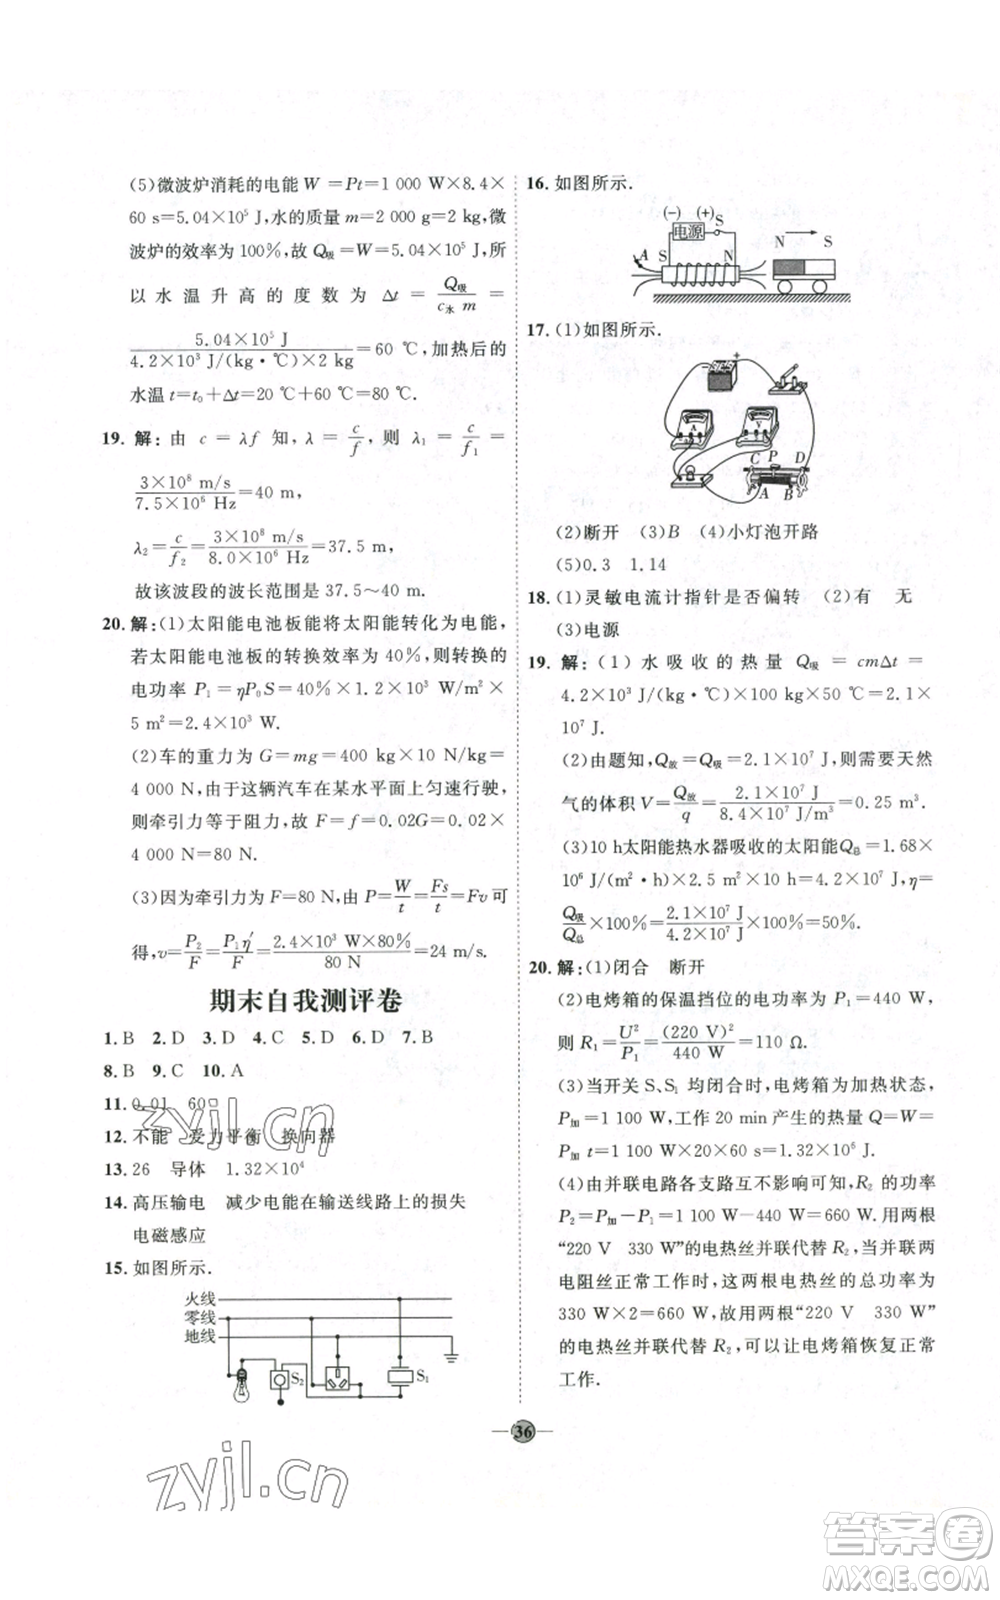 (5)微波炉消耗的电能 W＝Pt＝1 000 W×8.4×
60 s＝5.04×10⁵ J,水的质量 m＝2 000 g＝2 kg,微
波炉的效率为100%,故 Q吸＝W＝5.04×10⁵ J,所
以水温升高的度数为 Δt＝Q吸/(c水 m)＝
5.04×10⁵ J/(4.2×10³ J/(kg·℃)×2 kg)＝60 ℃,加热后的
水温 t＝t₀＋Δt＝20 ℃＋60 ℃＝80 ℃.
19. 解:由 c＝λf 知,λ＝c/f,则 λ₁＝c/f₁＝
(3×10⁸ m/s)/(7.5×10⁶ Hz)＝40 m,
λ₂＝c/f₂＝(3×10⁸ m/s)/(8.0×10⁶ Hz)＝37.5 m,
故该波段的波长范围是 37.5～40 m.
20. 解:(1)太阳能电池板能将太阳能转化为电能,
若太阳能电池板的转换效率为 40%,则转换的
电功率 P₁＝ηP₀S＝40%×1.2×10³ W/m²×
5 m²＝2.4×10³ W.
(2)车的重力为 G＝mg＝400 kg×10 N/kg＝
4 000 N,由于这辆汽车在某水平面上匀速行驶,
则牵引力等于阻力,故 F＝f＝0.02G＝0.02×
4 000 N＝80 N.
(3)因为牵引力为 F＝80 N,由 P＝W/t＝Fs/t＝Fv 可
得,v＝P₂/F＝P₁η′/F＝(2.4×10³ W×80%)/(80 N)＝24 m/s.
期末自我测评卷
1. B 2. D 3. D 4. C 5. D 6. D 7. B
8. B 9. C 10. A
11. 0.01 60
12. 不能 受力平衡 换向器
13. 26 导体 1.32×10⁴
14. 高压输电 减少电能在输送线路上的损失
电磁感应
15. 如图所示.
火线
零线
地线
S₂ S₁
16. 如图所示.
(−) (+)
电源 S
A S N
N S
17. (1)如图所示.
+
−
A V
C P D
A B
(2)断开 (3)B (4)小灯泡开路
(5)0.3 1.14
18. (1)灵敏电流计指针是否偏转 (2)有 无
(3)电源
19. 解:(1)水吸收的热量 Q吸＝cmΔt＝
4.2×10³ J/(kg·℃)×100 kg×50 ℃＝2.1×
10⁷ J.
(2)由题知,Q放＝Q吸＝2.1×10⁷ J,则需要天然
气的体积 V＝Q放/q＝(2.1×10⁷ J)/(8.4×10⁷ J/m³)＝0.25 m³.
(3)10 h太阳能热水器吸收的太阳能Q总＝1.68×
10⁶ J/(m²·h)×2.5 m²×10 h＝4.2×10⁷ J,η＝
Q吸/Q总×100%＝(2.1×10⁷ J)/(4.2×10⁷ J)×100%＝50%.
20. 解:(1)闭合 断开
(2)电烤箱的保温挡位的电功率为 P₁＝440 W,
则 R₁＝U²/P₁＝(220 V)²/440 W＝110 Ω.
(3)当开关 S、S₁ 均闭合时,电烤箱为加热状态,
P加＝1 100 W,工作 20 min 产生的热量 Q＝W＝
P加 t＝1 100 W×20×60 s＝1.32×10⁶ J.
(4)由并联电路各支路互不影响可知,R₂ 的功率
P₂＝P加－P₁＝1 100 W－440 W＝660 W.用两根
“220 V 330 W”的电热丝并联代替 R₂,当并联两
电阻丝正常工作时,这两根电热丝的总功率为
330 W×2＝660 W,故用两根“220 V 330 W”
的电热丝并联代替 R₂,可以让电烤箱恢复正常
工作.
36
zyjl.cn
zyjl.cn
答案圈
MXQE.COM